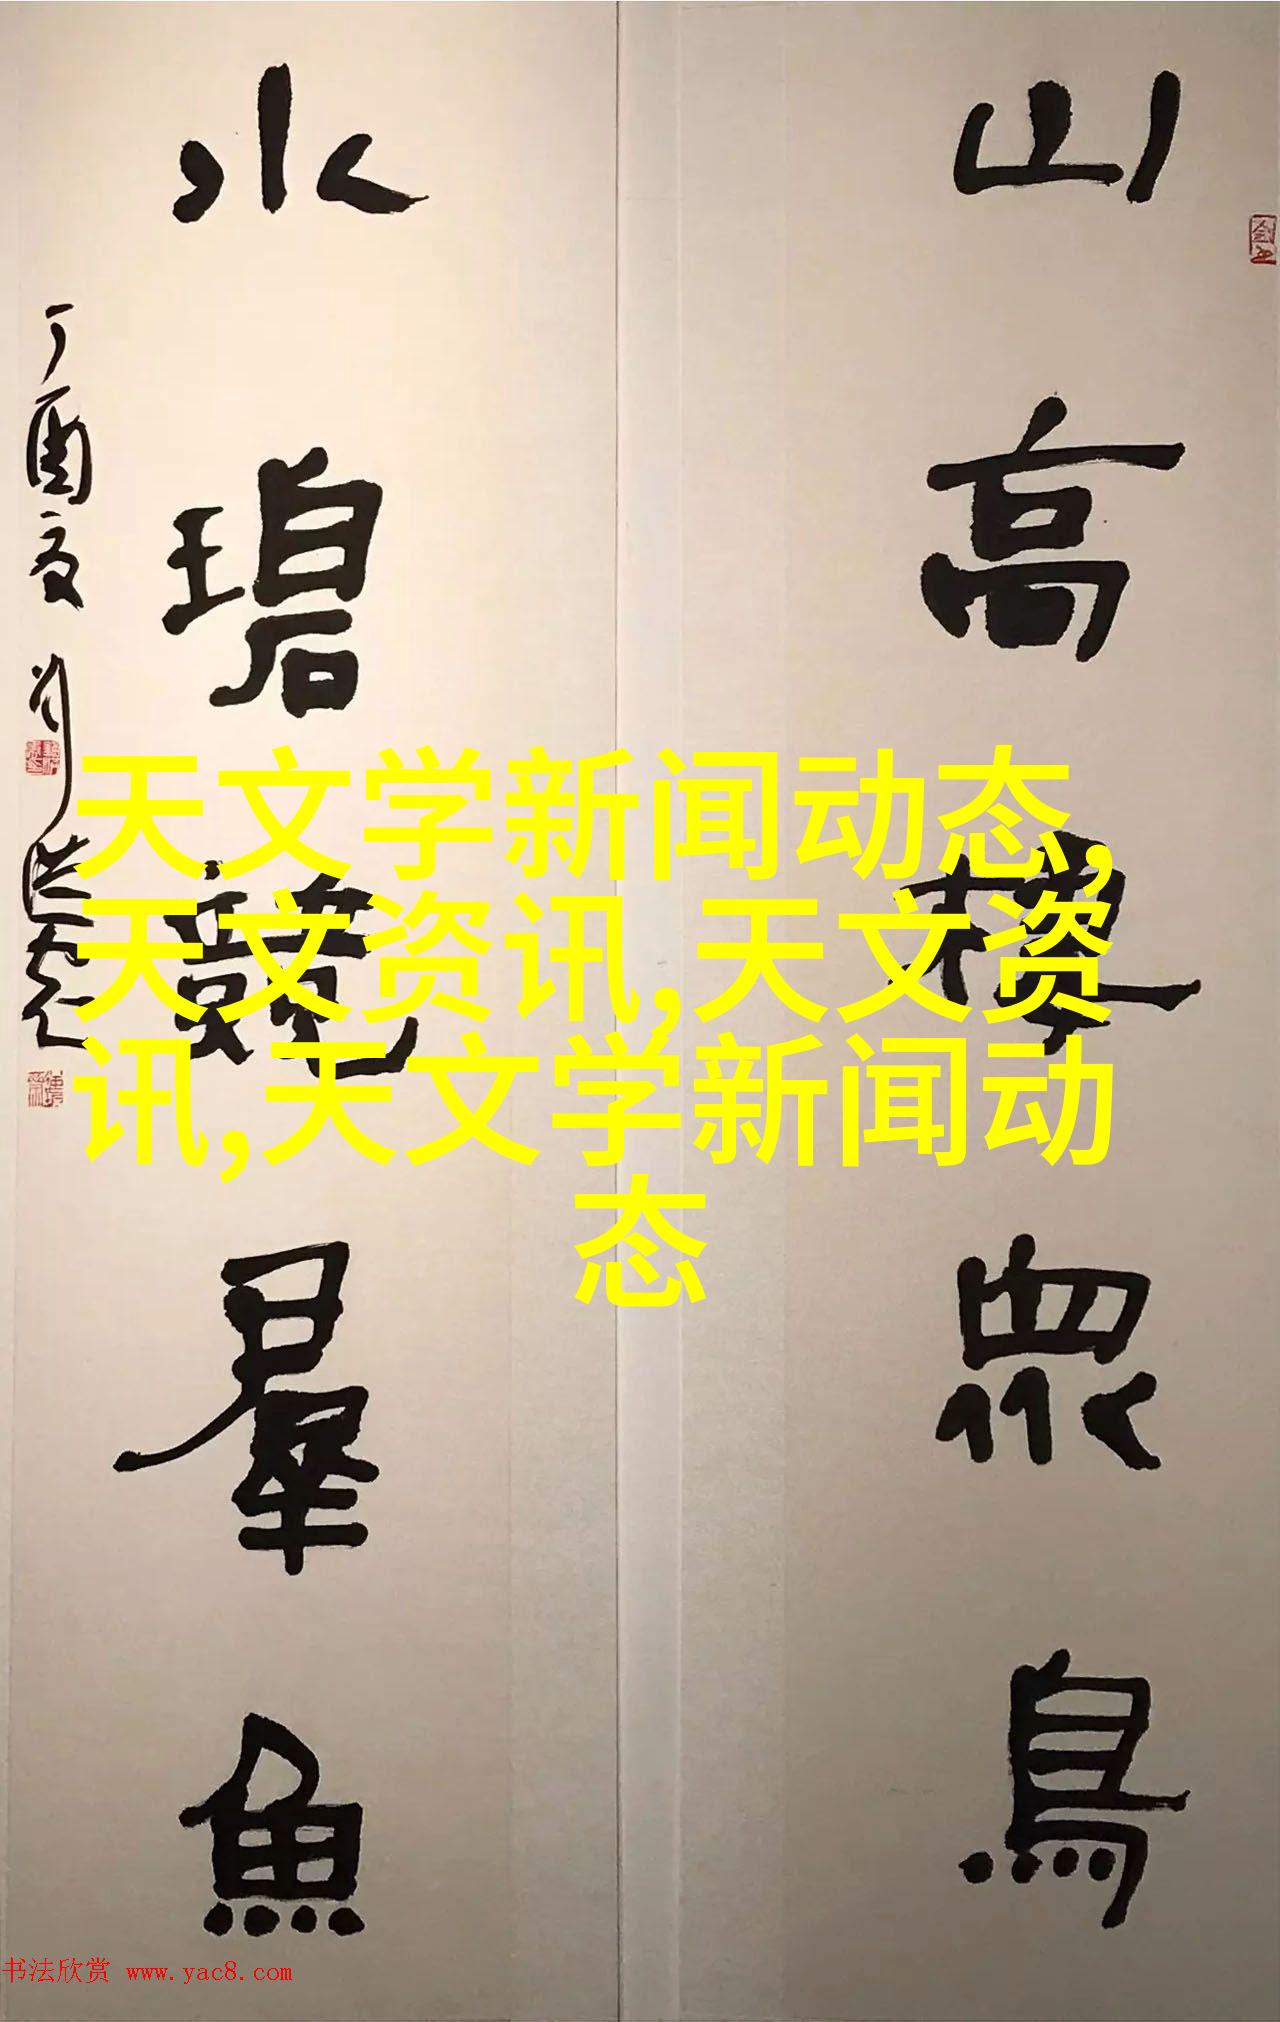 山高棲眾鳥
水碧競羣魚
丁酉夏
天文学新闻动态,
天文资讯,天文资
讯,天文学新闻动
态
书法欣赏 www.yac8.com